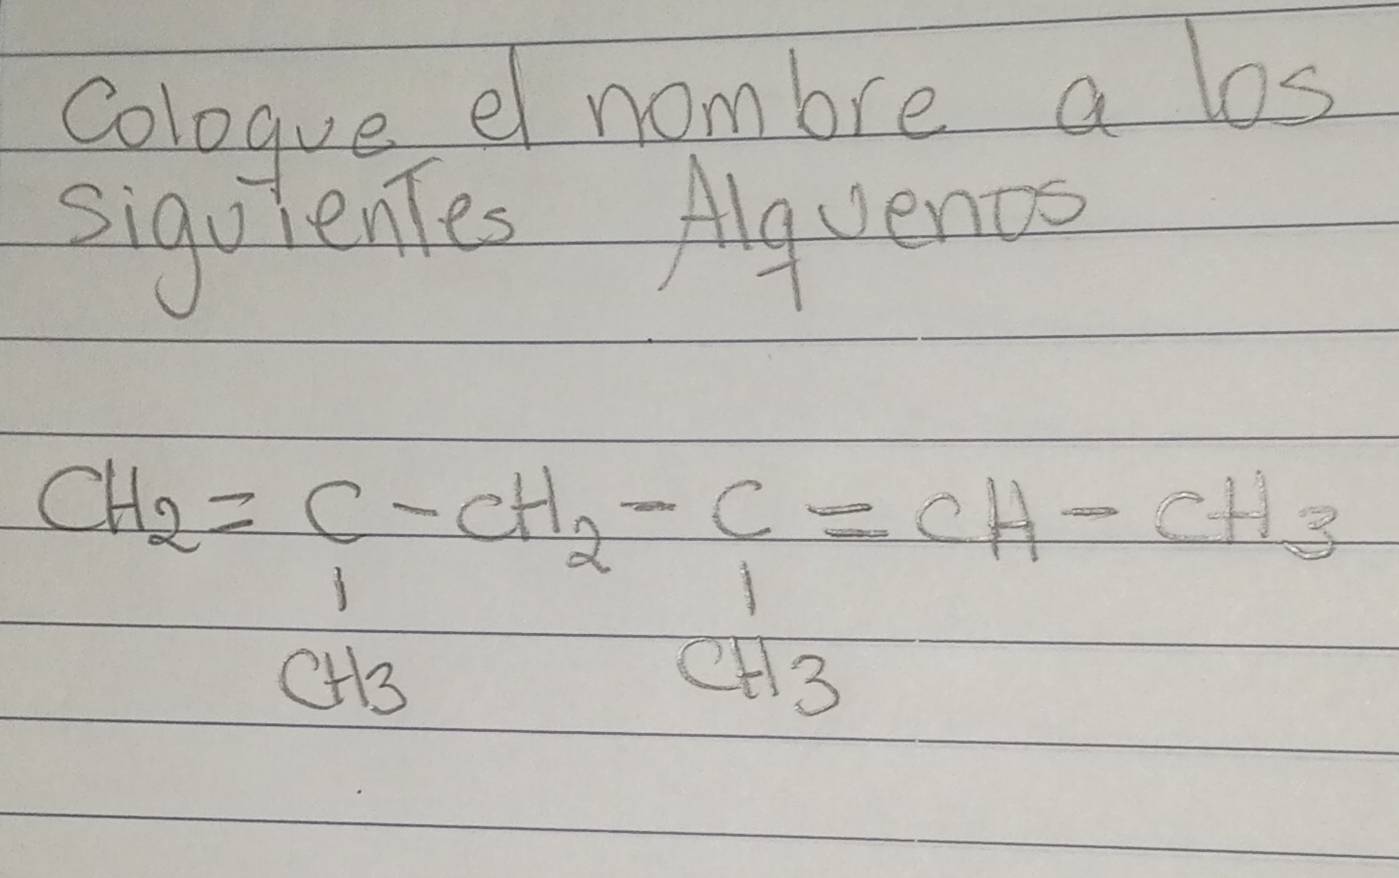 Coloque el nombre a los
siguientes Alquenos
CH2 = C - CH2 - C = CH - CH3
| |
CH3 CH3